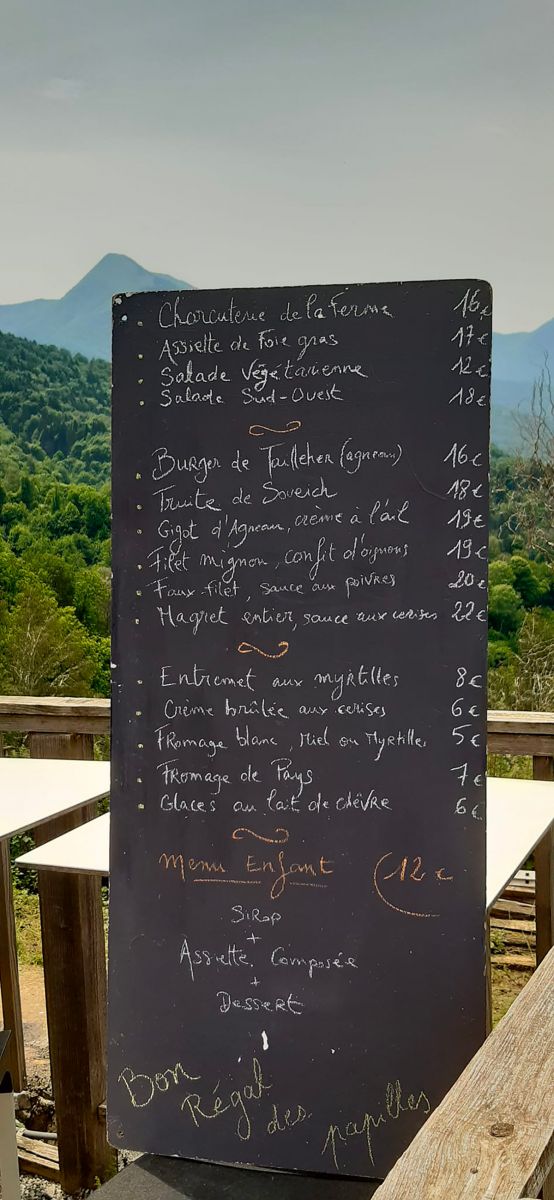 Charcuterie de la Ferme 16€
Assiette de Foie gras 17€
Salade Végétarienne 12€
Salade Sud-Ouest 18€
Burger de Tailleher (agneau) 16€
Truite de Soueich 18€
Gigot d'Agneau, crème à l'ail 19€
Filet mignon, confit d'oignons 19€
Faux-filet, sauce aux poivres 20€
Magret entier, sauce aux cerises 22€
Entremet aux myrtilles 8€
Crème brûlée aux cerises 6€
Fromage blanc, Miel ou Myrtilles 5€
Fromage de Pays 7€
Glaces au lait de chèvre 6€
Menu Enfant (12€
Sirop
+
Assiette Composée
+
Dessert
Bon Régal des papilles